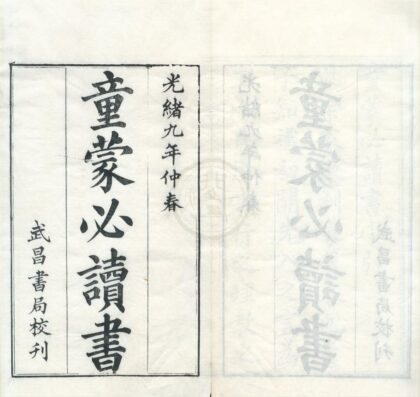 光緒九年仲春
童蒙必讀書
武昌書局校刊